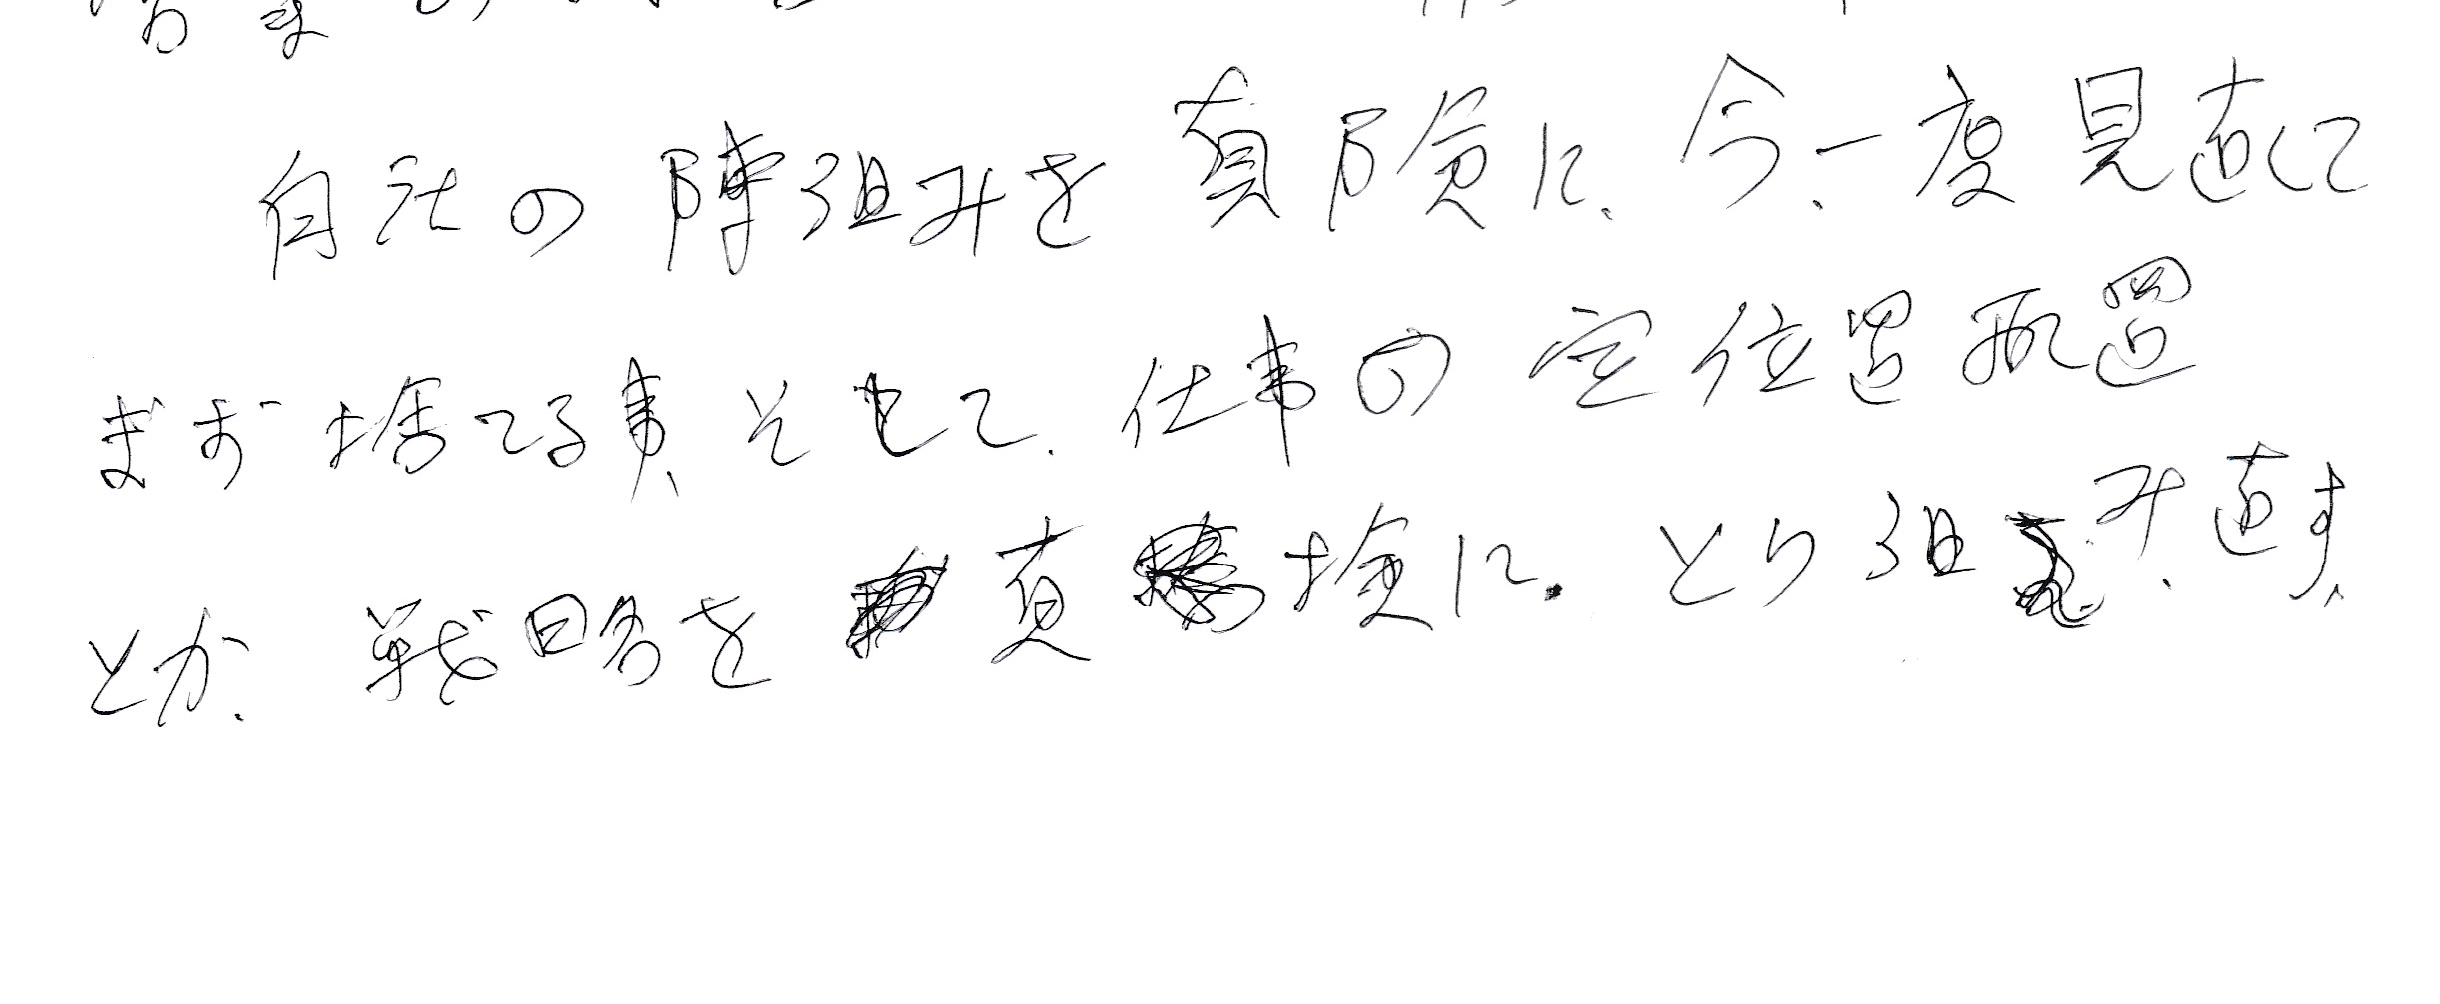 自社の陣組みを真険に、今、一度見直して
まず捨てる事、そして、仕事の定位置配置
とか、戦略を真検に、とり組み、直す、